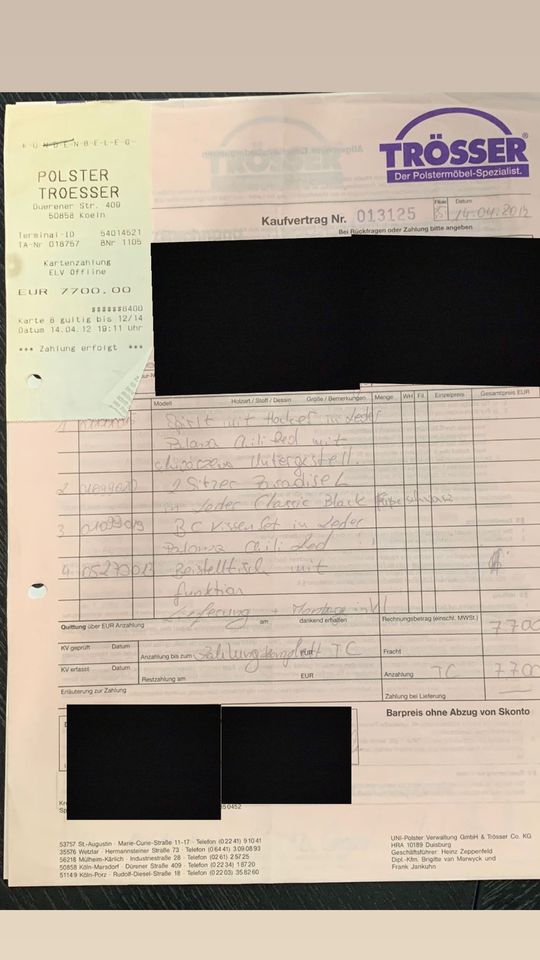 KUNDENBELEG
POLSTER
TROESSER
Duerener Str. 409
50858 Koeln
Terminal-ID 54014521
TA-Nr 018757 BNr 1105
Kartenzahlung
ELV Offline
EUR 7700,00
######6400
Karte 6 gultig bis 12/14
Datum 14.04.12 19:11 Uhr
*** Zahlung erfolgt ***
TRÖSSER
Der Polstermöbel-Spezialist.
Kaufvertrag Nr. 013125
Filiale Datum
14.04.2012
Bei Rückfragen oder Zahlung bitte angeben
Modell Holzart / Stoff / Dessin Größe / Bemerkungen Menge WH Fil. Einzelpreis Gesamtpreis EUR
1 Spirit mit Hocker in Leder
Chili Red mit
Untergestell.
2 2 Sitzer Paradise L
in Leder Classic Black
3 BC Kissen Set in Leder
Chili Red
4. Beistelltisch mit
funktion
Lieferung + Montage inkl.
Quittung über EUR Anzahlung am dankend erhalten Rechnungsbetrag (einschl. MWSt.) 7700
KV geprüft Datum Anzahlung bis zum EUR TC Fracht
KV erfasst Datum Restzahlung am EUR Anzahlung TC 7700
Erläuterung zur Zahlung Zahlung bei Lieferung
Barpreis ohne Abzug von Skonto
50452
53757 St.-Augustin · Marie-Curie-Straße 11-17 · Telefon (0 22 41) 9 10 41
35576 Wetzlar · Hermannsteiner Straße 73 · Telefon (0 64 41) 3 09 08 93
56218 Mülheim-Kärlich · Industriestraße 28 · Telefon (02 61) 2 57 25
50858 Köln-Marsdorf · Dürener Straße 409 · Telefon (0 22 34) 1 87 20
51149 Köln-Porz · Rudolf-Diesel-Straße 18 · Telefon (0 22 03) 35 82 60
UNI-Polster Verwaltung GmbH & Trösser Co. KG
HRA 10189 Duisburg
Geschäftsführer: Heinz Zeppenfeld
Dipl.-Kfm. Brigitte van Marwyck und
Frank Jankuhn